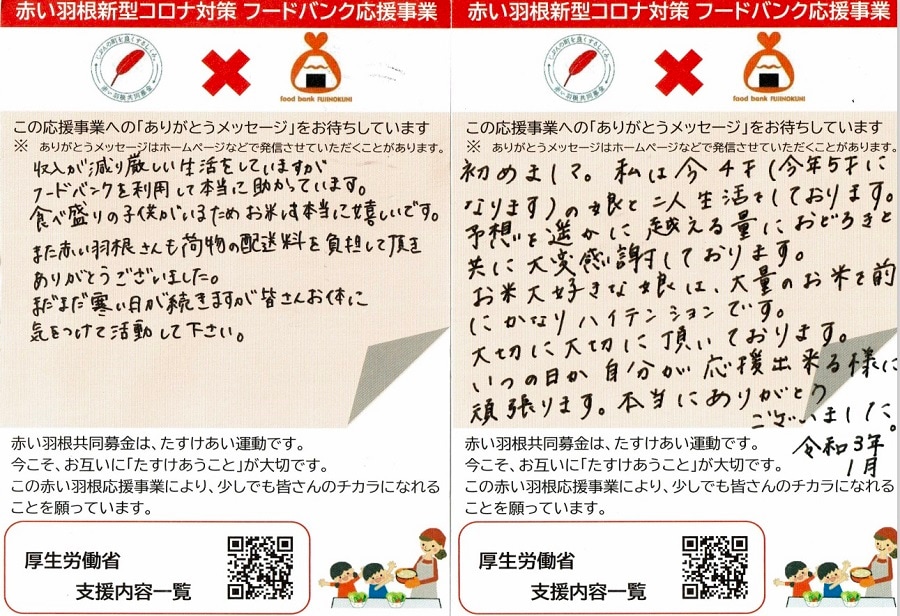 赤い羽根新型コロナ対策 フードバンク応援事業
じぶんの町を良くするしくみ。
赤い羽根共同募金
food bank FUJINOKUNI
この応援事業への「ありがとうメッセージ」をお待ちしています
※ ありがとうメッセージはホームページなどで発信させていただくことがあります。
収入が減り厳しい生活をしていますが
フードバンクを利用して本当に助かっています。
食べ盛りの子供がいるためお米は本当に嬉しいです。
また赤い羽根さんも荷物の配送料を負担して頂き
ありがとうございました。
まだまだ寒い日が続きますが皆さんお体に
気をつけて活動して下さい。
赤い羽根共同募金は、たすけあい運動です。
今こそ、お互いに「たすけあうこと」が大切です。
この赤い羽根応援事業により、少しでも皆さんのチカラになれる
ことを願っています。
厚生労働省
支援内容一覧
赤い羽根新型コロナ対策 フードバンク応援事業
じぶんの町を良くするしくみ。
赤い羽根共同募金
food bank FUJINOKUNI
この応援事業への「ありがとうメッセージ」をお待ちしています
※ ありがとうメッセージはホームページなどで発信させていただくことがあります。
初めまして。私は今4才(今年5才に
なります)の娘と二人生活をしております。
予想を遥かに越える量におどろきと
共に大変感謝しております。
お米大好きな娘は、大量のお米を前
にかなりハイテンションです。
大切に大切に頂いております。
いつの日か自分が応援出来る様に
頑張ります。本当にありがとう
ございました。
令和3年
1月
赤い羽根共同募金は、たすけあい運動です。
今こそ、お互いに「たすけあうこと」が大切です。
この赤い羽根応援事業により、少しでも皆さんのチカラになれる
ことを願っています。
厚生労働省
支援内容一覧